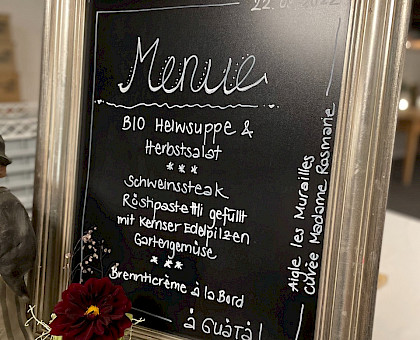 Menue
BIO Heiwsuppe &
Herbstsalat
***
Schweinssteak
Röstipastetli gefüllt
mit Kernser Edelpilzen
Gartengemüse
***
Brennticrème à la Bord
à GUÄTÄ!
Aigle les Murailles
Cuvée Madame Rosmarie